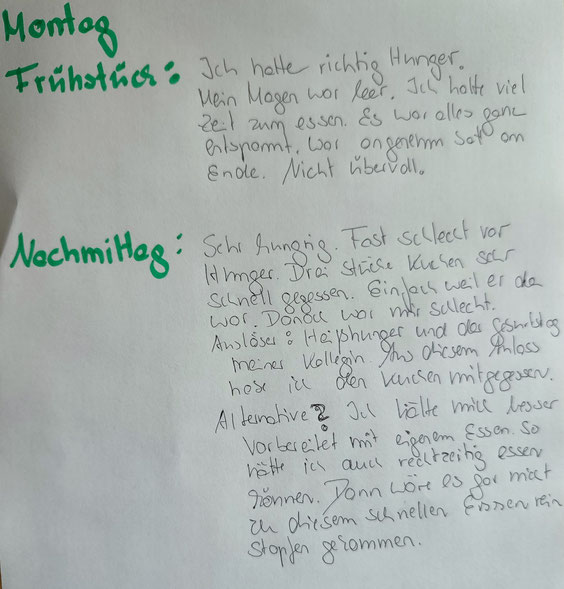 Montag
Frühstück: Ich hatte richtig Hunger.
Mein Magen war leer. Ich hatte viel
Zeit zum essen. Es war alles ganz
entspannt. War angenehm satt am
Ende. Nicht übervoll.
Nachmittag: Sehr hungrig. Fast schlecht vor
Hunger. Drei stücke Kuchen sehr
schnell gegessen. Einfach weil er da
war. Danach war mir schlecht.
Auslöser: Heißhunger und der Geburtstag
meiner Kollegin Aus diesem Anlass
habe ich den Kuchen mitgegessen.
Alternative? Ich hätte mich besser
vorbereitet mit eigenem Essen. So
hätte ich auch rechtzeitig essen
können. Dann wäre es gar nicht
zu diesem schnellen Essen rein
stopfen gekommen.